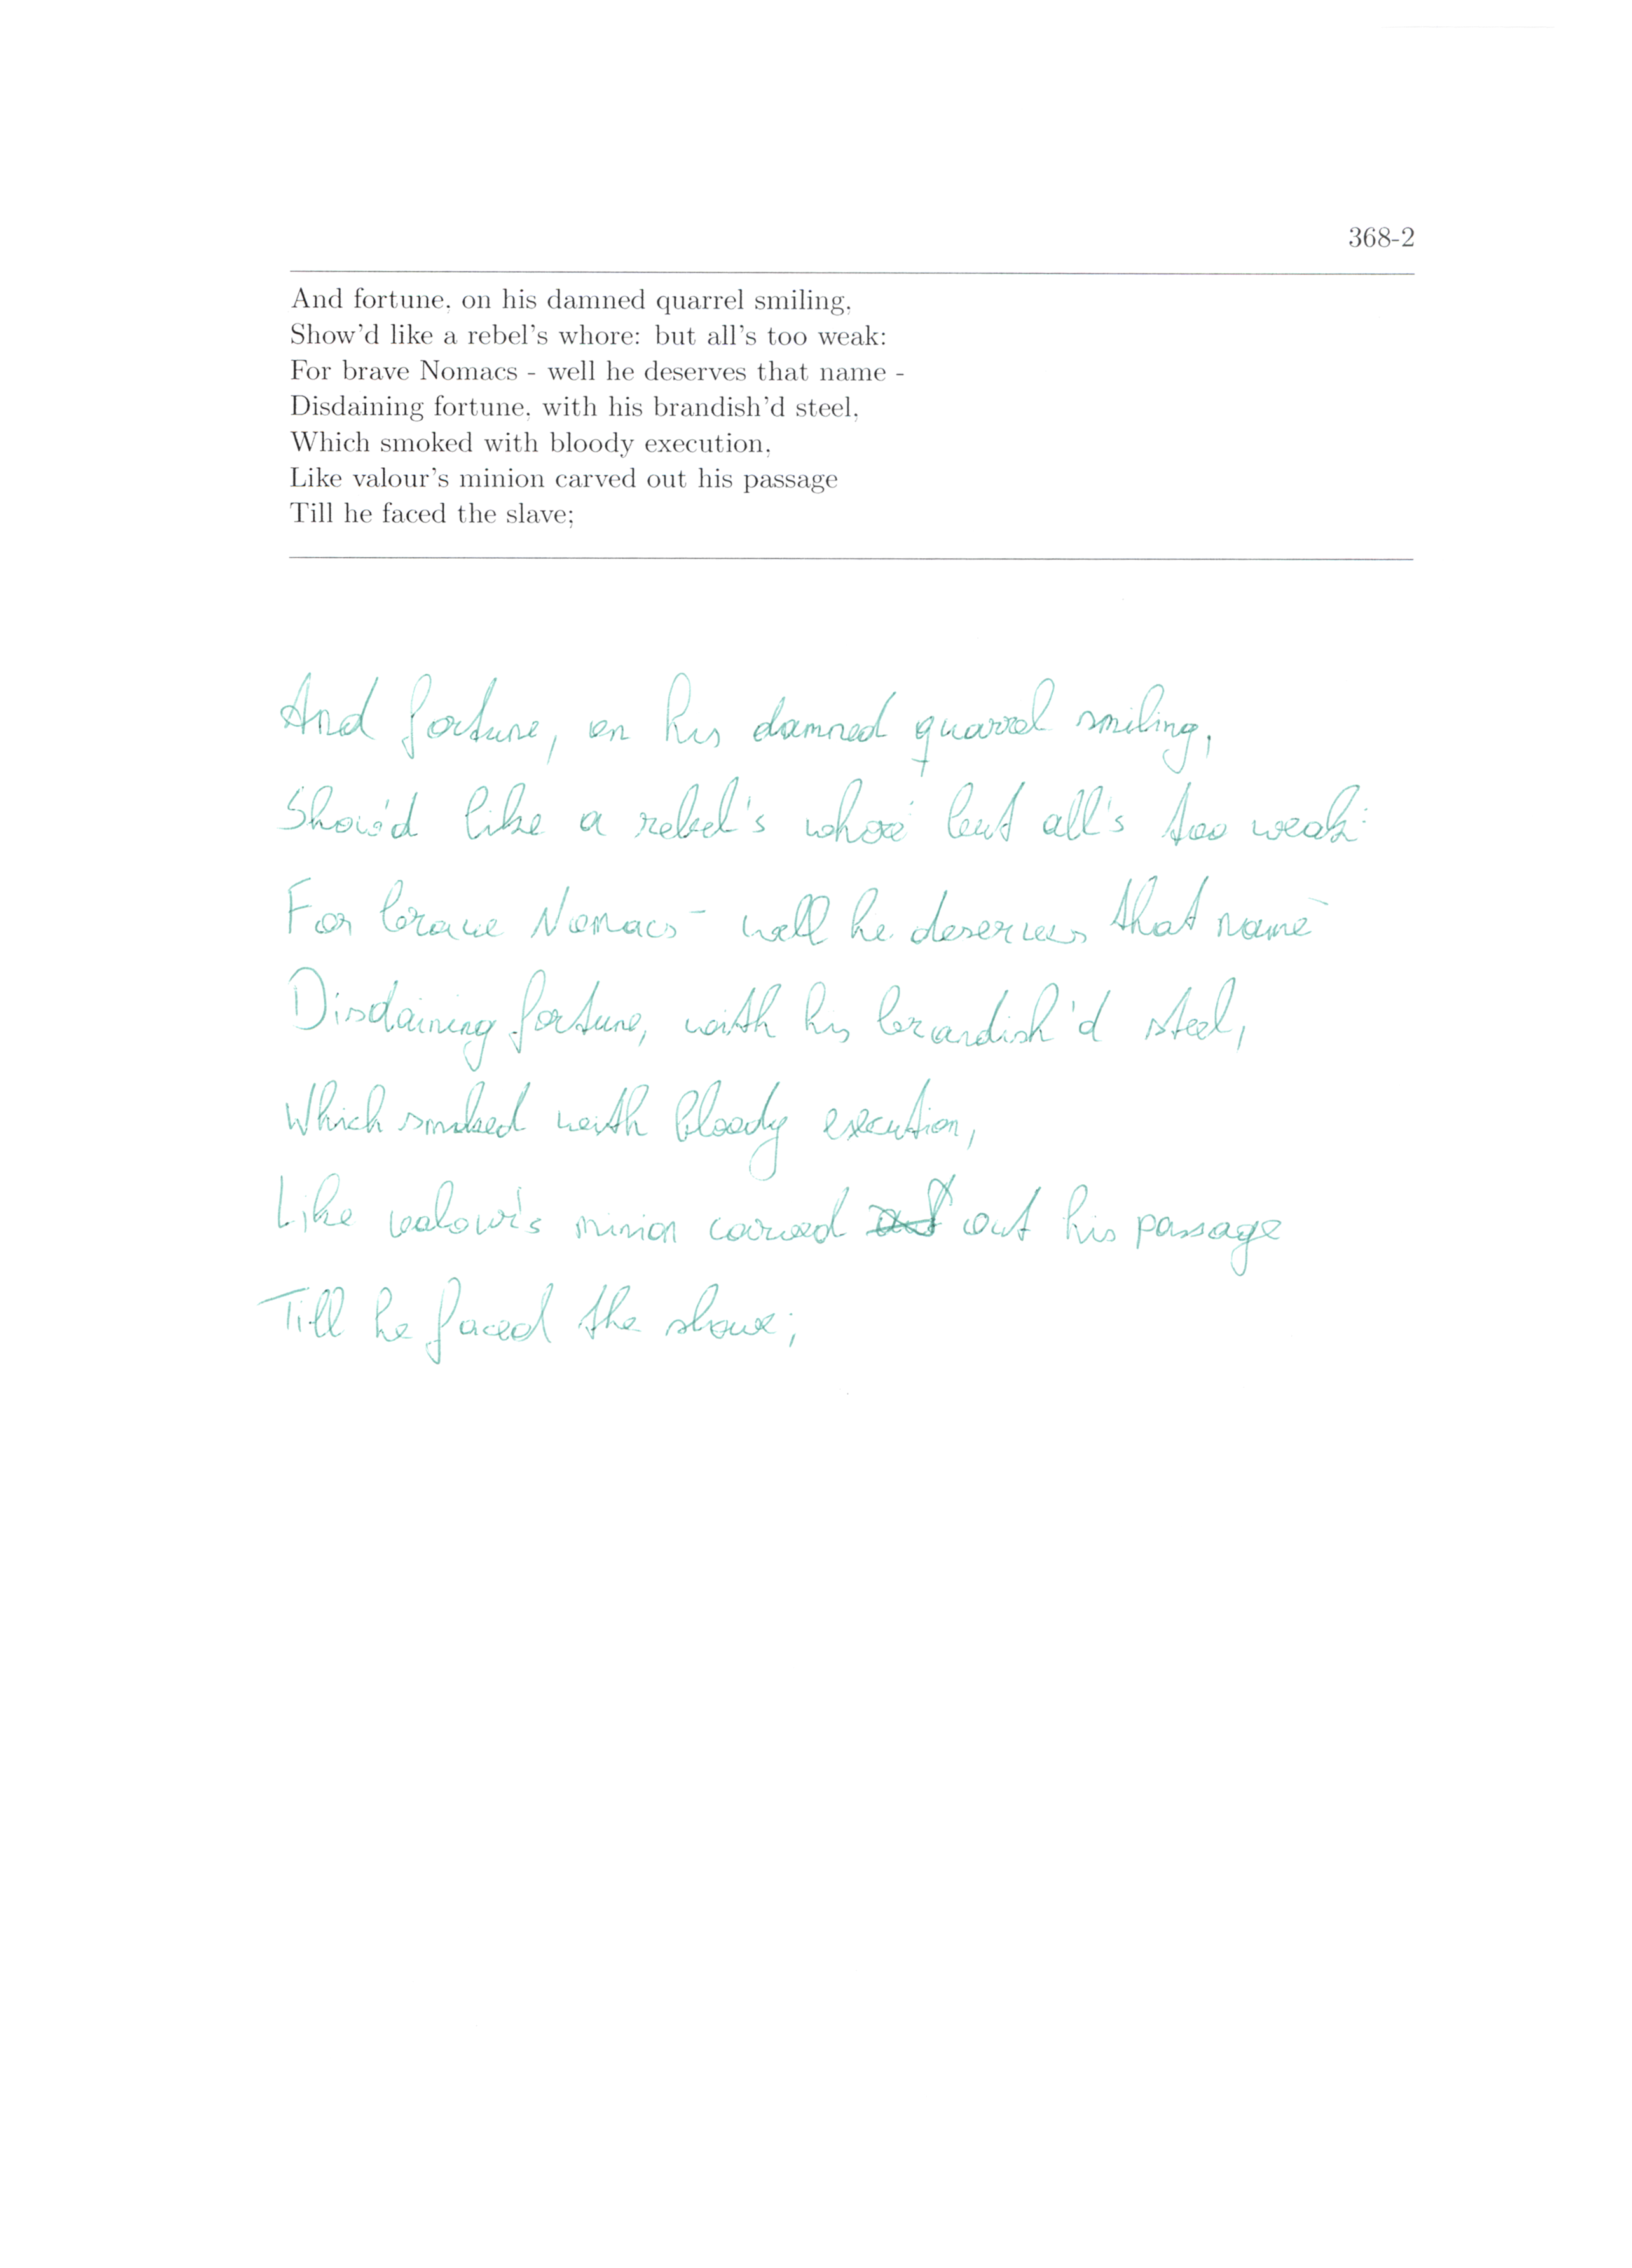 368-2
And fortune, on his damned quarrel smiling,
Show'd like a rebel's whore: but all's too weak:
For brave Nomacs - well he deserves that name -
Disdaining fortune, with his brandish'd steel,
Which smoked with bloody execution,
Like valour's minion carved out his passage
Till he faced the slave;
And fortune, on his damned quarrel smiling,
Show'd like a rebel's whore: but all's too weak:
For brave Nomacs - well he deserves that name -
Disdaining fortune, with his brandish'd steel,
Which smoked with bloody execution,
Like valour's minion carved out his passage
Till he faced the slave;